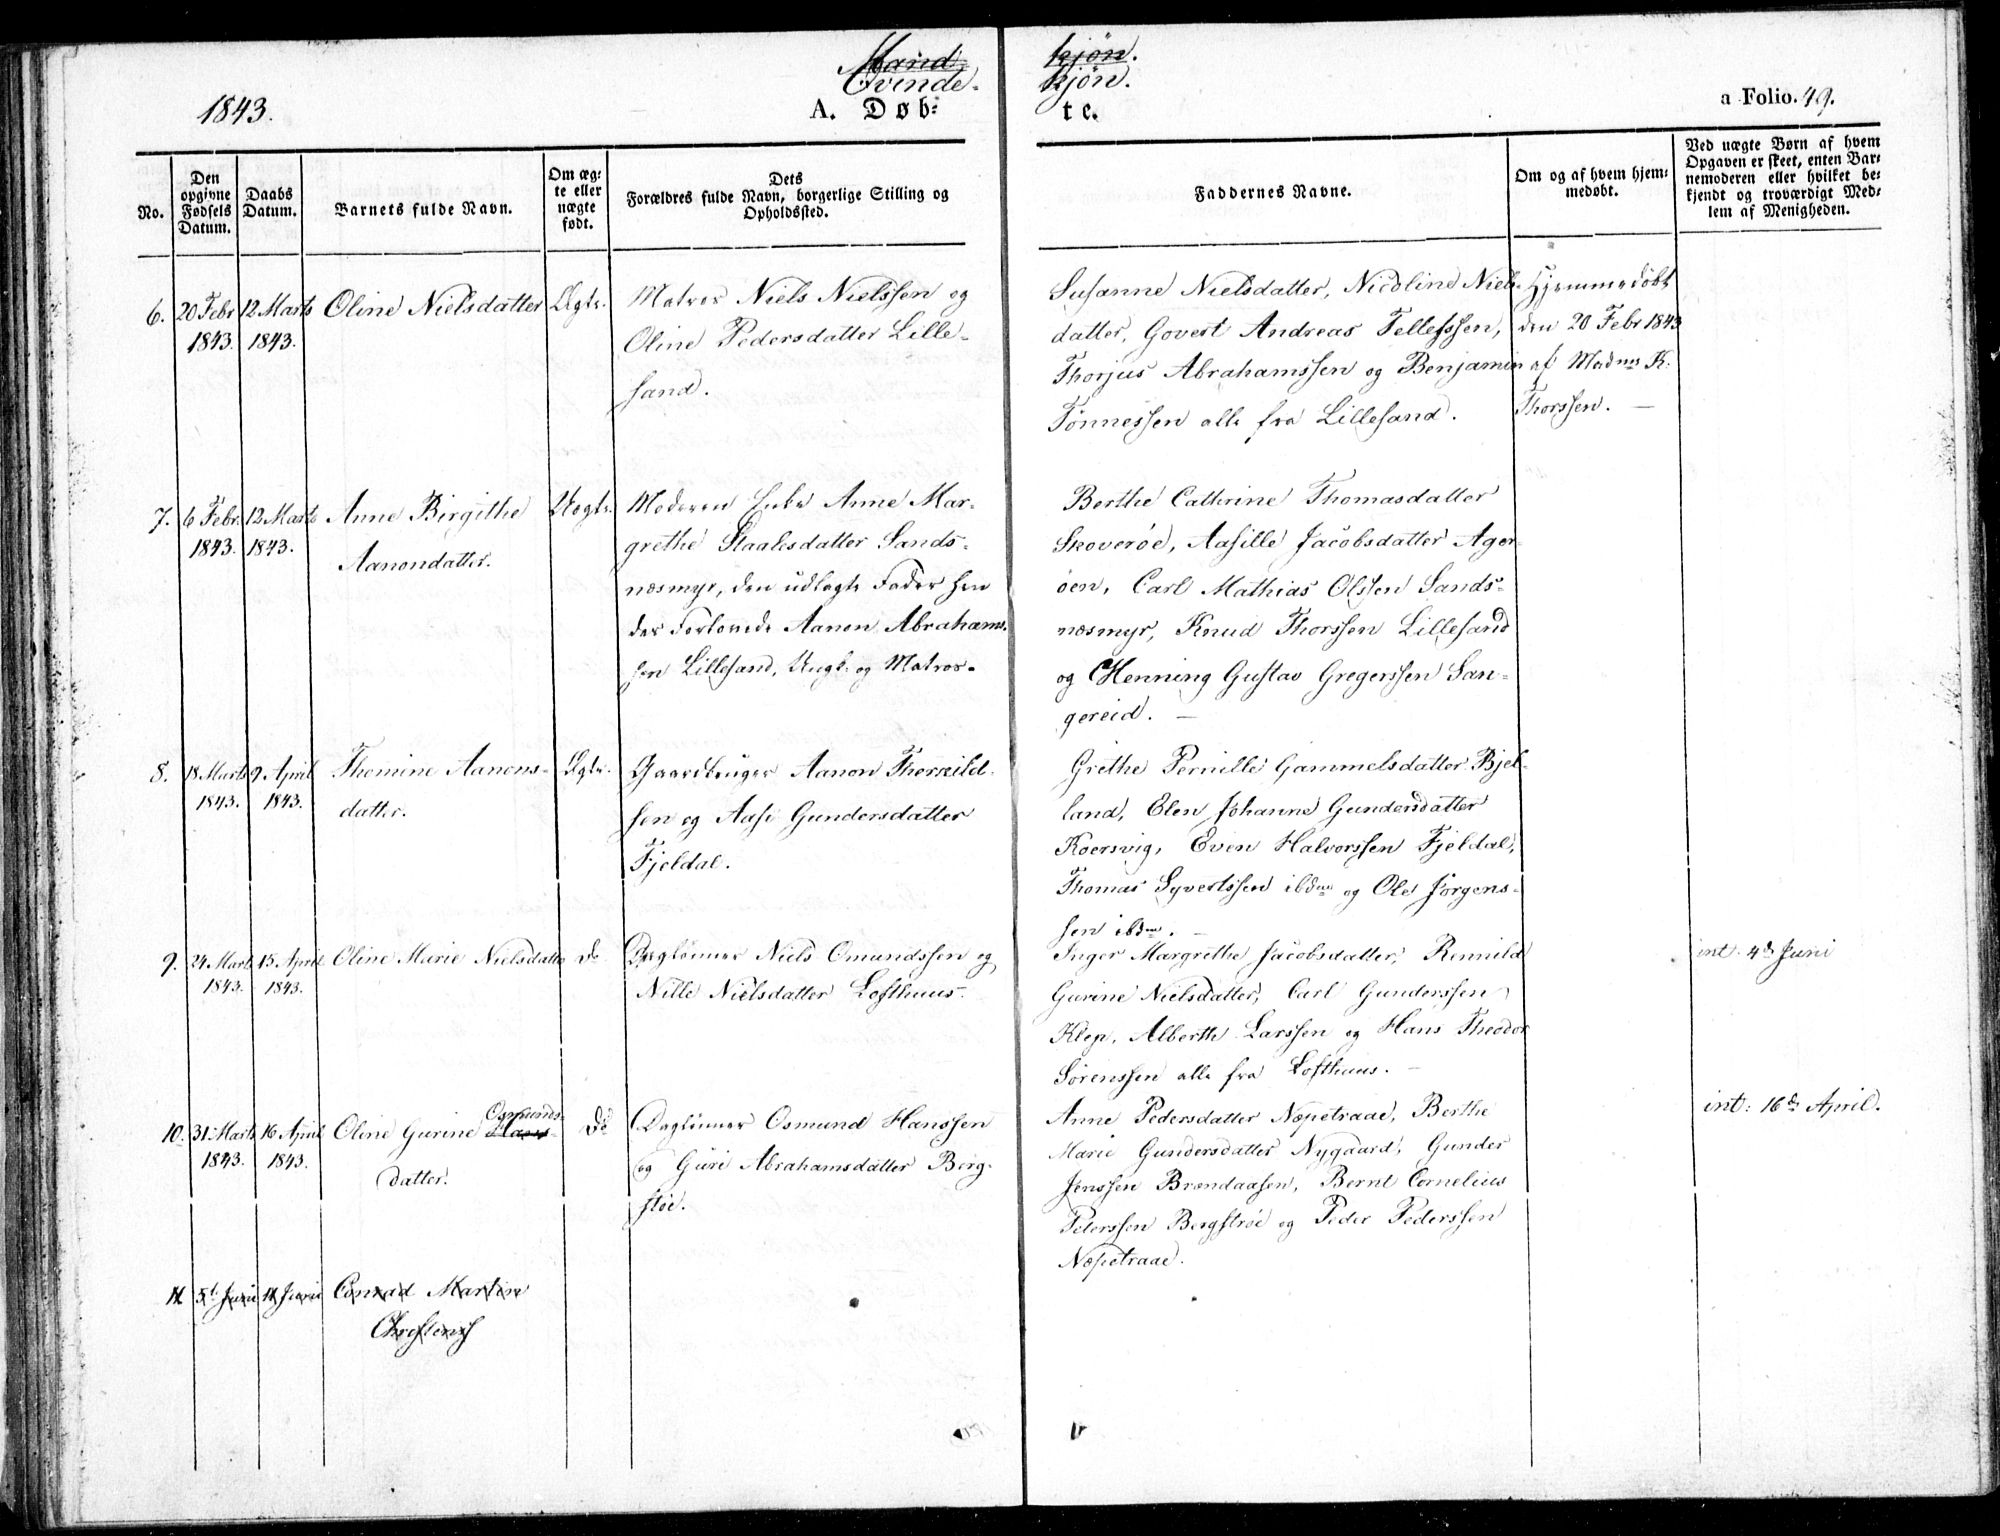 Mand kjön.
Qvinde- kjön.
1843.
A. Døb= te.
a Folio. 49.
No.
Den opgivne Fødsels Datum.
Daabs Datum.
Barnets fulde Navn.
Om æg= te eller uægte født.
Dets Forældres fulde Navn, borgerlige Stilling og Opholdssted.
Faddernes Navne.
Om og af hvem hjem= medøbt.
Ved uægte Børn af hvem Opgaven er skeet, enten Bar= nemoderen eller hvilket be= kjendt og troværdigt Med= lem af Menigheden.
6. 20 Febr 1843. 12 Marts 1843. Oline Nielsdatter Ægte.
Matros Niels Nielssen og
Oline Pedersdatter Lille-
sand.
Susanne Nielsdatter, Nicoline Niels-
datter, Govert Andreas Tellefssen,
Thorjus Abrahamssen og Benjamin
Tönnessen alle fra Lillesand.
Hjemmedöbt
den 20 Febr 1843
af Madm K.
Thorssen. —
7. 6 Febr. 1843. 12 Marts 1843. Anne Birgithe
Aanondatter.
Uægte.
Moderen Enke Anne Mar-
grethe Staalesdatter Sands-
næsmyr, den udlagte Fader hen
des Forlovede Aanon Abrahams-
sen Lillesand, Ungk. og Matros-
Berthe Cathrine Thomasdatter
Skoveröe, Aasille Jacobsdatter Ager-
öen, Carl Mathias Olsen Sands-
næsmyr, Knud Thorssen Lillesand
og Henning Gustav Gregerssen San-
gereid. —
8. 18 Marts 1843. 9 April 1843. Thomine Aanons-
datter.
Ægte.
Gaardbruger Aanon Therkild-
sen og Aase Gundersdatter
Fjeldal.
Grethe Pernille Gammelsdatter Bjel-
land, Elen Johanne Gundersdatter
Koersvig, Even Halvorssen Fjeldal,
Thomas Syvertssen ibdm og Ole Jörgens-
sen ibdm. —
9. 24 Marts 1843. 15 April 1843. Oline Marie Nielsdatter Do
Daglönner Niels Omundssen og
Nille Nielsdatter Lofthuus.
Inger Margrethe Jacobsdatter, Rennild
Gurine Nielsdatter, Carl Gunderssen
Klep, Alberth Larssen og Hans Theodor
Sörenssen alle fra Lofthuus. —
int. 4de Juni
10. 31 Marts 1843. 16 April 1843. Oline Gurine Hans- Osmunds-
datter.
Do
Daglönner Osmund Hanssen
og Guri Abrahamsdatter Berg-
ströe.
Anne Pedersdatter Næpetraae, Berthe
Marie Gundersdatter Nygaard, Gunder
Jenssen Brændaasen, Bernt Cornelius
Peterssen Bergströe og Peder Pederssen
Næpetraae.
int: 16de April.
11. 5t Juni 11 Juni Conrad Martin